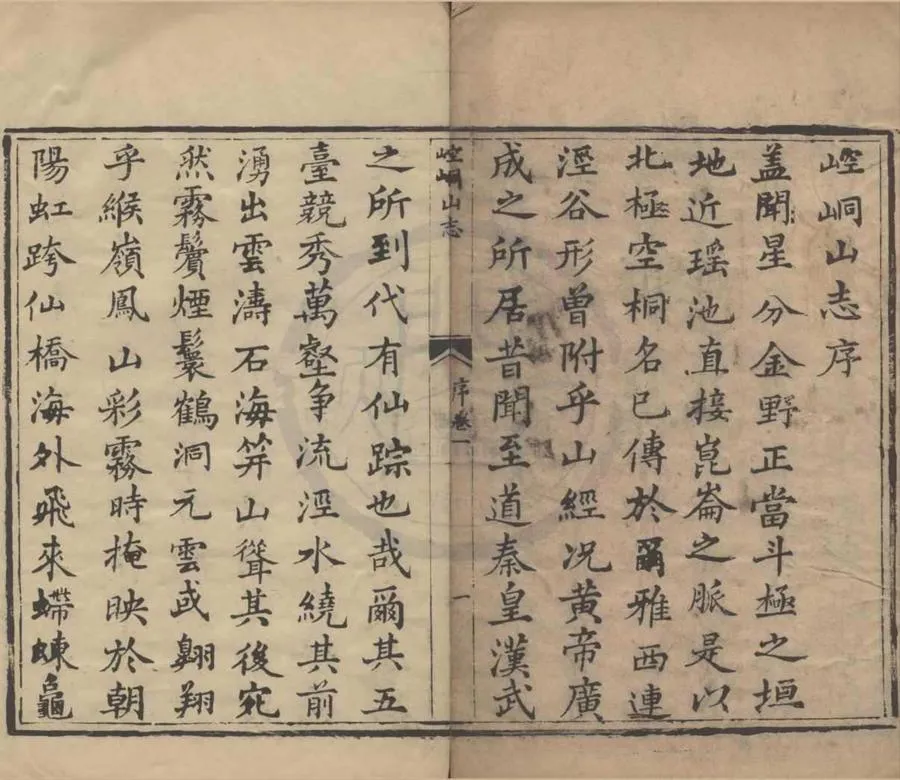 崆峒山志序
盖聞星分金野正當斗極之垣
地近瑶池直接崑崙之脈是以
北極空桐名已傳於爾雅西連
涇谷形曽附乎山經况黄帝廣
成之所居昔聞至道秦皇漢武
崆峒山志
序卷一
一
之所到代有仙踪也哉爾其五
臺競秀萬壑争流涇水繞其前
湧出雲濤石海笄山聳其後宛
然霧鬢煙鬟鶴洞元雲或翺翔
乎緱嶺鳳山彩霧時掩映於朝
陽虹跨仙橋海外飛來螮蝀龜